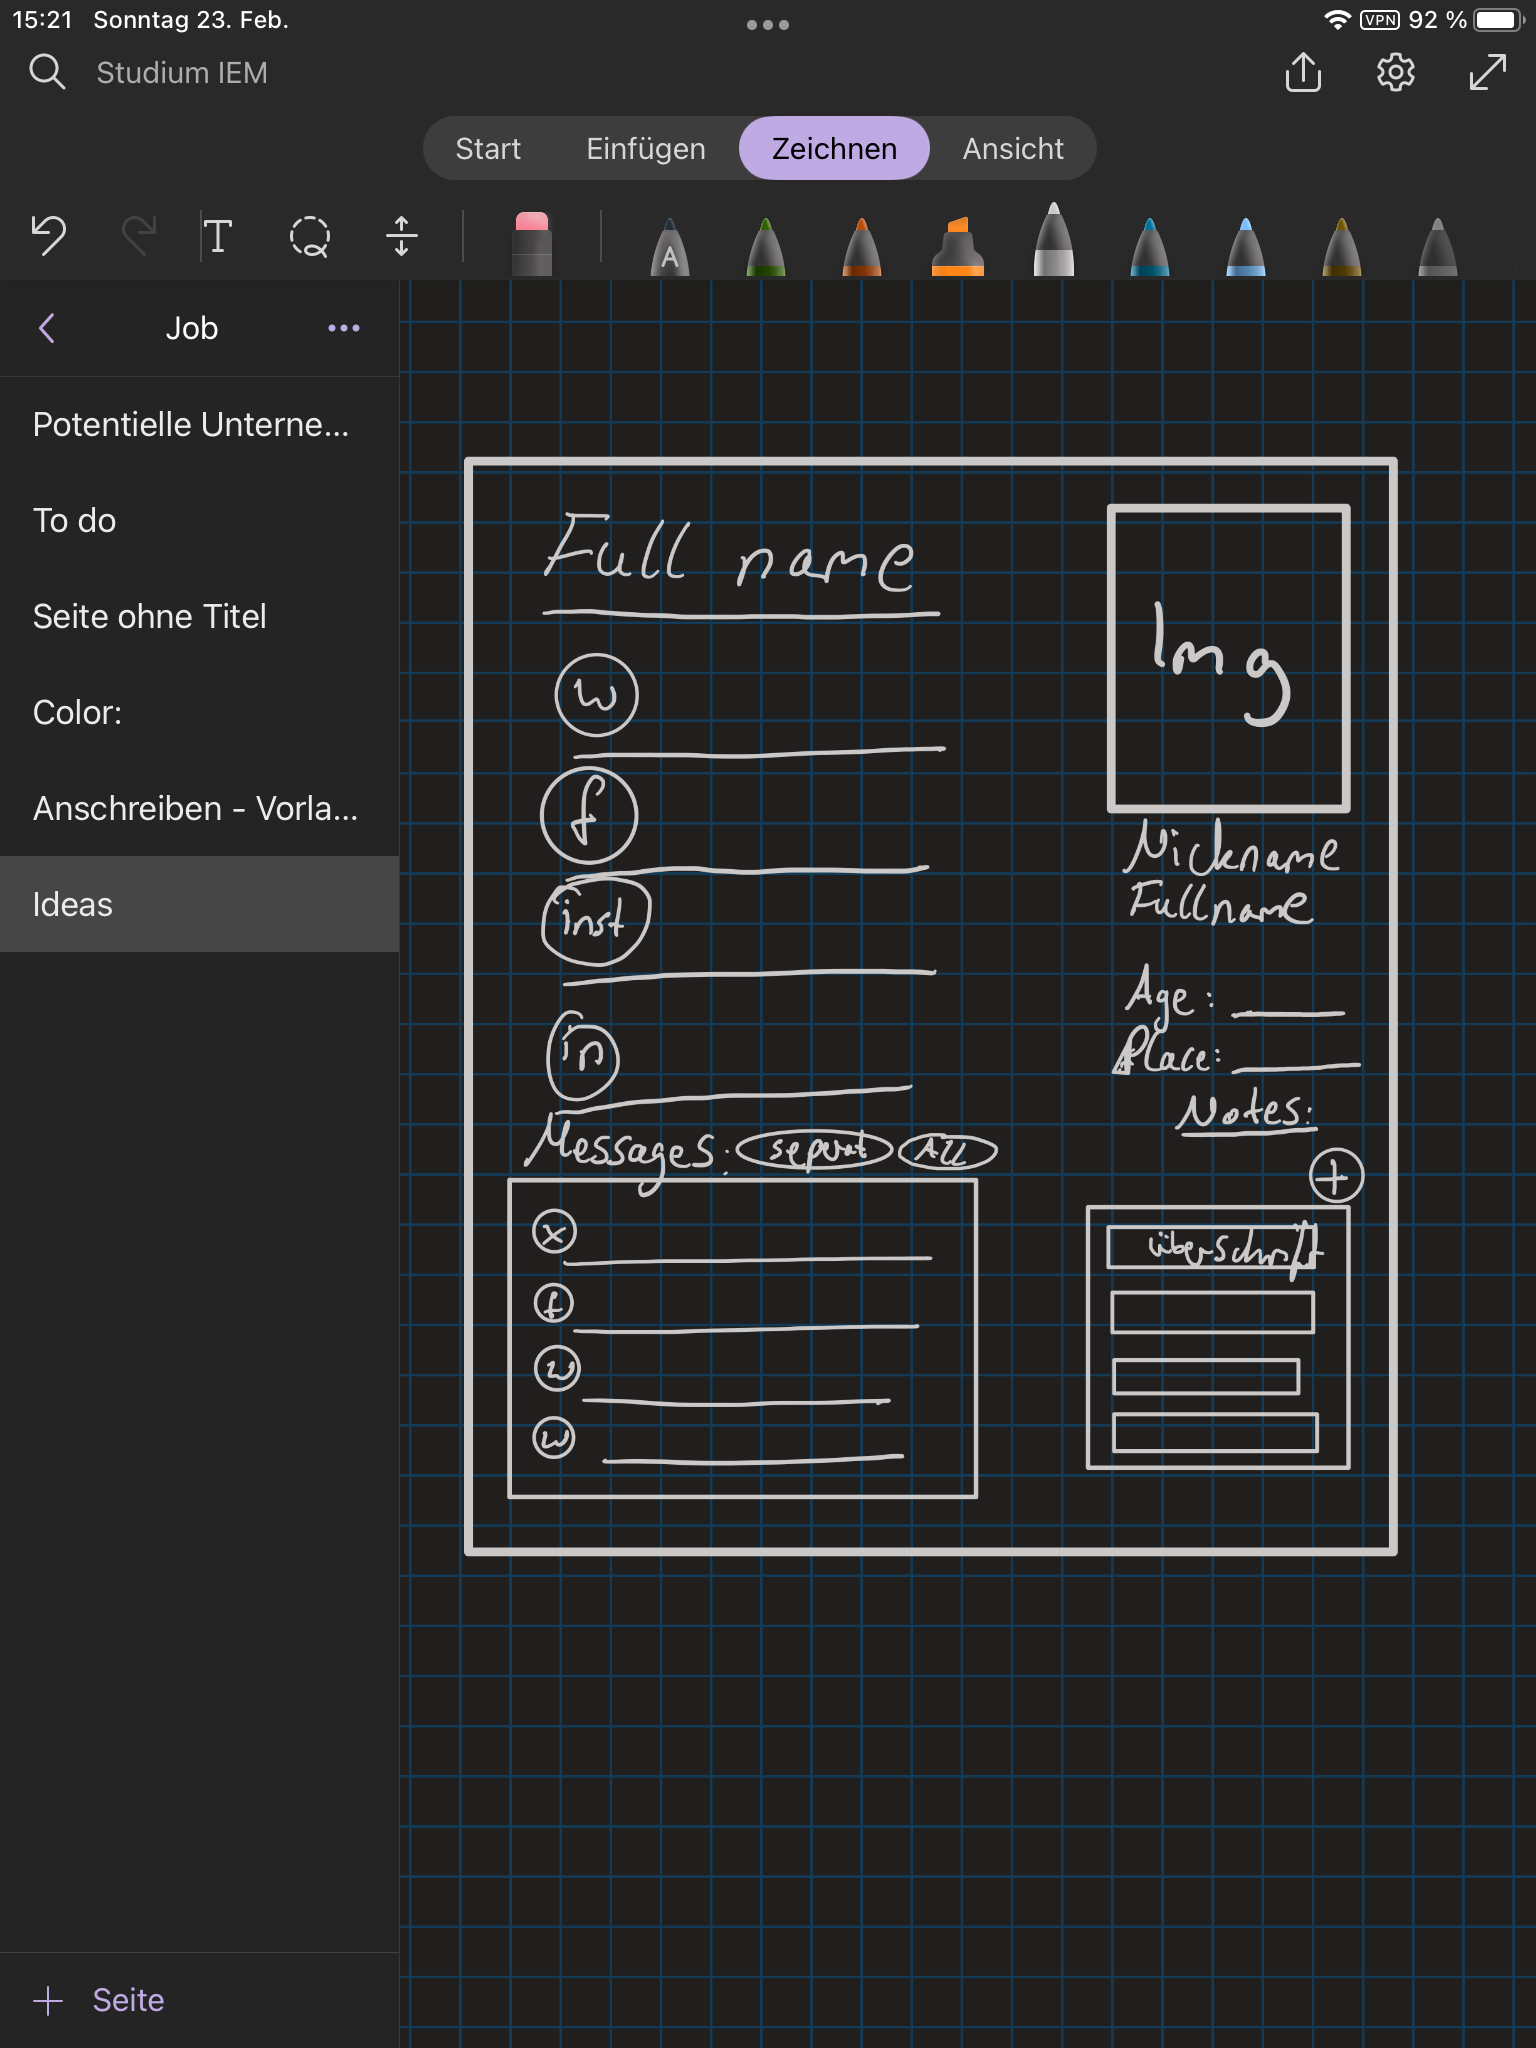 15:21 Sonntag 23. Feb.
VPN 92 %
Studium IEM
Start Einfügen Zeichnen Ansicht
T
A
Job
Potentielle Unterne...
To do
Seite ohne Titel
Color:
Anschreiben - Vorla...
Ideas
Seite
Full name
w
f
inst
in
Messages: seperat All
x
f
w
w
Img
Nickname
Fullname
Age:
Place:
Notes:
+
überschrift